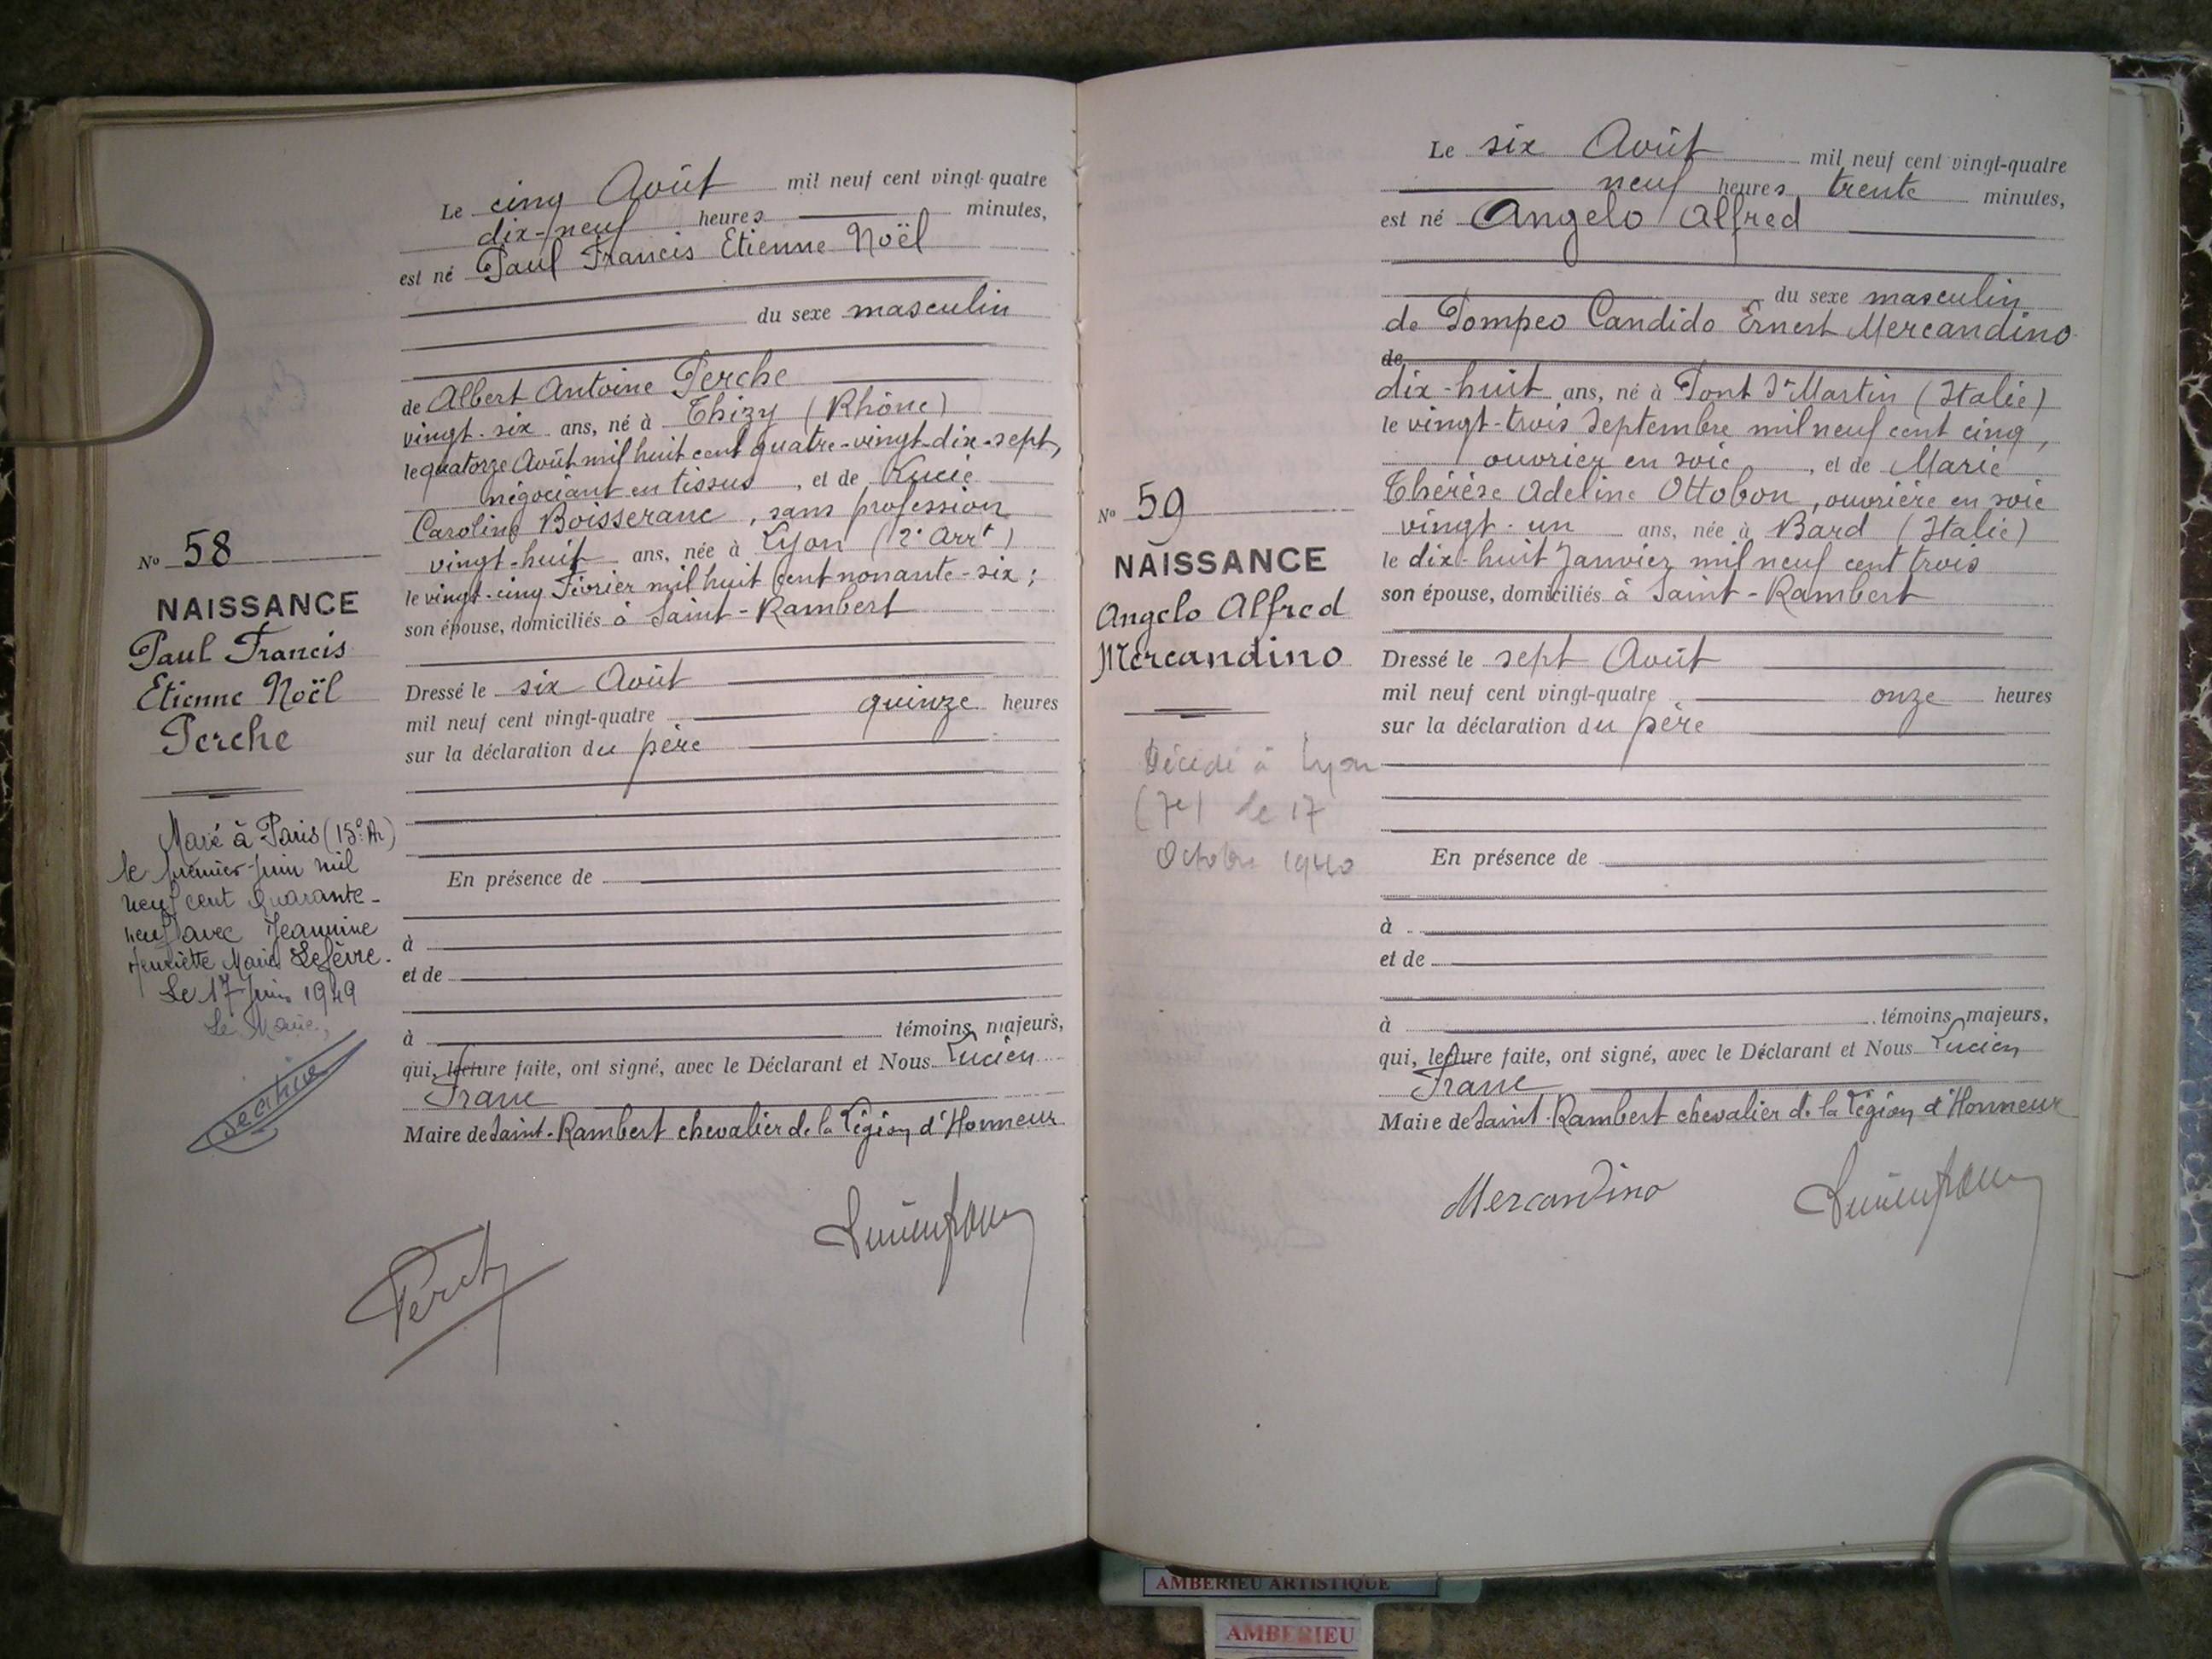 Le cinq Août mil neuf cent vingt-quatre
dix-neuf heures minutes,
est né Paul Francis Etienne Noël
du sexe masculin
de Albert Antoine Perche
vingt-six ans, né à Thizy (Rhône)
le quatorze Août mil huit cent quatre-vingt-dix-sept,
négociant en tissus, et de Lucie
Caroline Boisseranc, sans profession
vingt-huit ans, née à Lyon (2e Arrt)
le vingt-cinq Février mil huit cent nonante-six;
son épouse, domiciliés à Saint-Rambert
Dressé le six Août
mil neuf cent vingt-quatre quinze heures
sur la déclaration du père
En présence de
à
et de
à témoins majeurs,
qui, lecture faite, ont signé, avec le Déclarant et Nous Lucien
Franc
Maire de Saint-Rambert chevalier de la Légion d'Honneur
No 58
NAISSANCE
Paul Francis
Etienne Noël
Perche
Marié à Paris (15e Ar)
le premier juin mil
neuf cent quarante-
neuf avec Jeannine
Henriette Marie Lefèvre.
Le 17 Juin 1949
Le Maire,
Perche
Le six Août mil neuf cent vingt-quatre
neuf heures trente minutes,
est né Angelo Alfred
du sexe masculin
de Pompeo Candido Ernest Mercandino
de
dix-huit ans, né à Pont St Martin (Italie)
le vingt-trois Septembre mil neuf cent cinq,
ouvrier en soie, et de Marie
Thérèse Adeline Ottobon, ouvrière en soie
vingt-un ans, née à Bard (Italie)
le dix-huit Janvier mil neuf cent trois
son épouse, domiciliés à Saint-Rambert
Dressé le sept Août
mil neuf cent vingt-quatre onze heures
sur la déclaration du père
En présence de
à
et de
à témoins majeurs,
qui, lecture faite, ont signé, avec le Déclarant et Nous Lucien
Franc
Maire de Saint-Rambert chevalier de la Légion d'Honneur
No 59
NAISSANCE
Angelo Alfred
Mercandino
Décédé à Lyon
(7e) le 17
Octobre 1940
Mercandino
AMBERIEU ARTISTIQUE
AMBERIEU